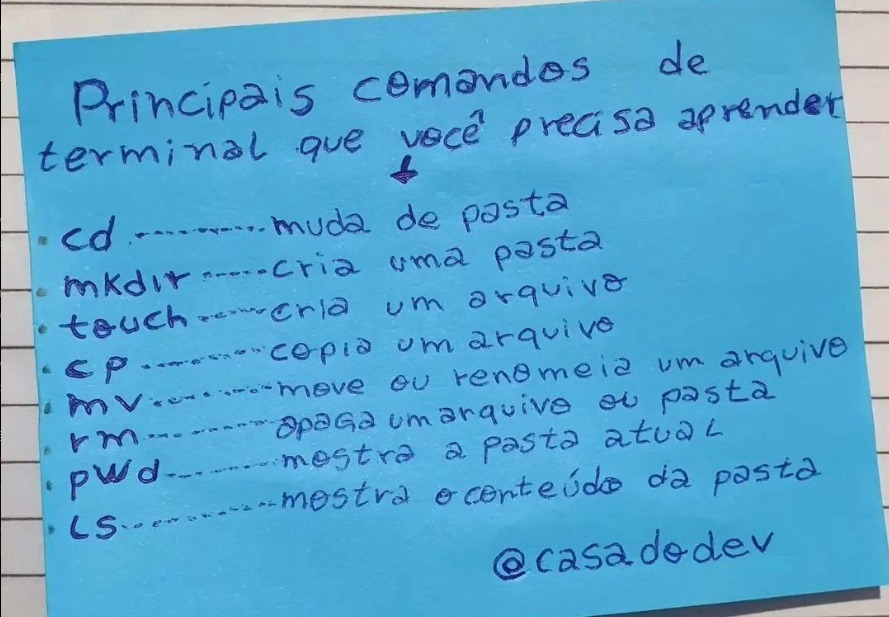 Principais comandos de
terminal que você precisa aprender
• cd ............ muda de pasta
• mkdir ...... cria uma pasta
• touch ....... cria um arquivo
• cp ............ copia um arquivo
• mv ............ move ou renomeia um arquivo
• rm ............ apaga um arquivo ou pasta
• pwd .......... mostra a pasta atual
• ls .............. mostra o conteúdo da pasta
@casadodev